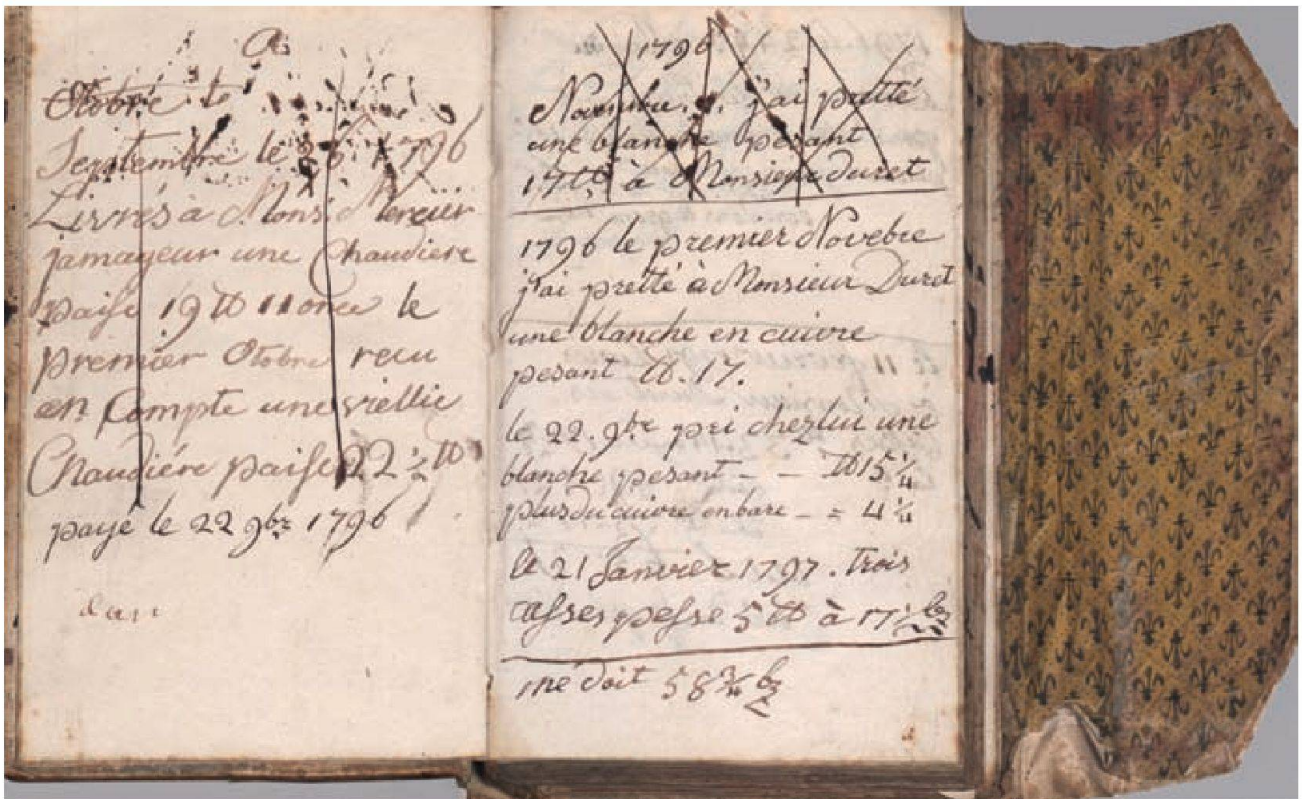 Otobre le
Septembre le 26 1796
Livrés à Mons. Mercier
jamageur une Chaudiere
paise 19 ℔ 11 once le
premier Otobre recu
en Compte une viellie
Chaudiére paise 22 ½ ℔
payé le 22 9bre 1796
dan
1796
Novembre j'ai pretté
une blanche pesant
17 ℔ à Monsieur Duret
1796 le premier Novebre
j'ai pretté à Monsieur Duret
une blanche en cuivre
pesant ℔. 17.
le 22. 9bre pri chez lui une
blanche pesant - - ℔ 15 ¼
plus du cuivre en bare - = 4 ¼
le 21 Janvier 1797. trois
casses pesse 5 ℔ à 17 ½ bz
mé doit 58 ¾ bz